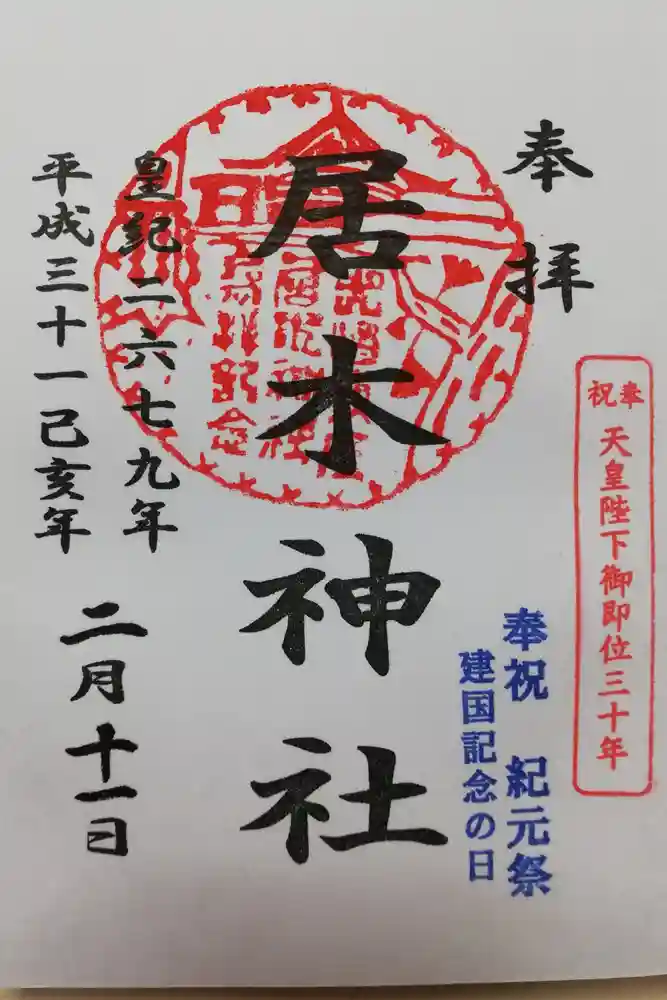 奉拝
奉祝
天皇陛下御即位三十年
奉祝 紀元祭
建国記念の日
居木神社
皇紀二六七九年
平成三十一己亥年
二月十一日